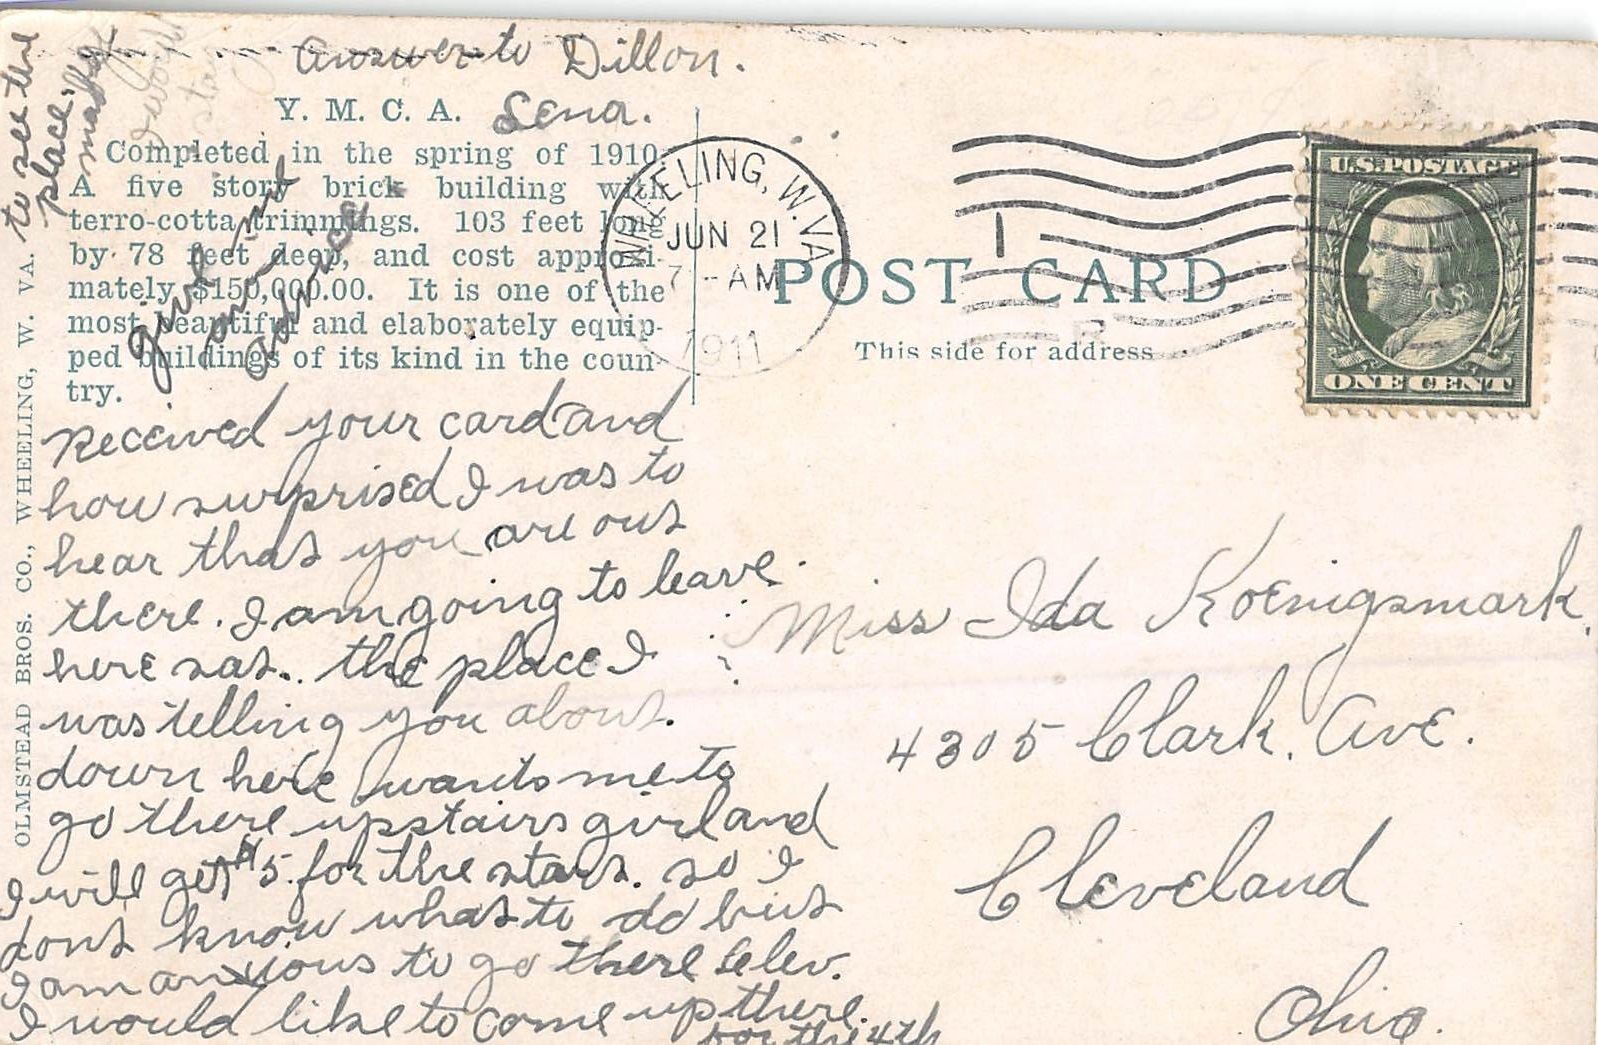 Answer to Dillon.
Sena.
Y. M. C. A.
Completed in the spring of 1910.
A five story brick building with
terro-cotta trimmings. 103 feet long
by 78 feet deep, and cost approxi-
mately $150,000.00. It is one of the
most beautiful and elaborately equip-
ped buildings of its kind in the coun-
try.
give me
advice
Received your card and
how surprised I was to
hear that you are out
there. I am going to leave
here sat.. the place I
was telling you about.
down here wants me to
go there upstairs girl and
I will get $5. for the start. so I
dont know what to do but
I am anxious to go there
I would like to come up there.
for the 4th
to see the
place.
OLMSTEAD BROS. CO., WHEELING, W. VA.
WHEELING, W. VA.
JUN 21
7 - AM
1911
1
POST CARD
This side for address
U.S. POSTAGE
ONE CENT
Miss Ida Koenigsmark.
4305 Clark. Ave.
Cleveland
Ohio.